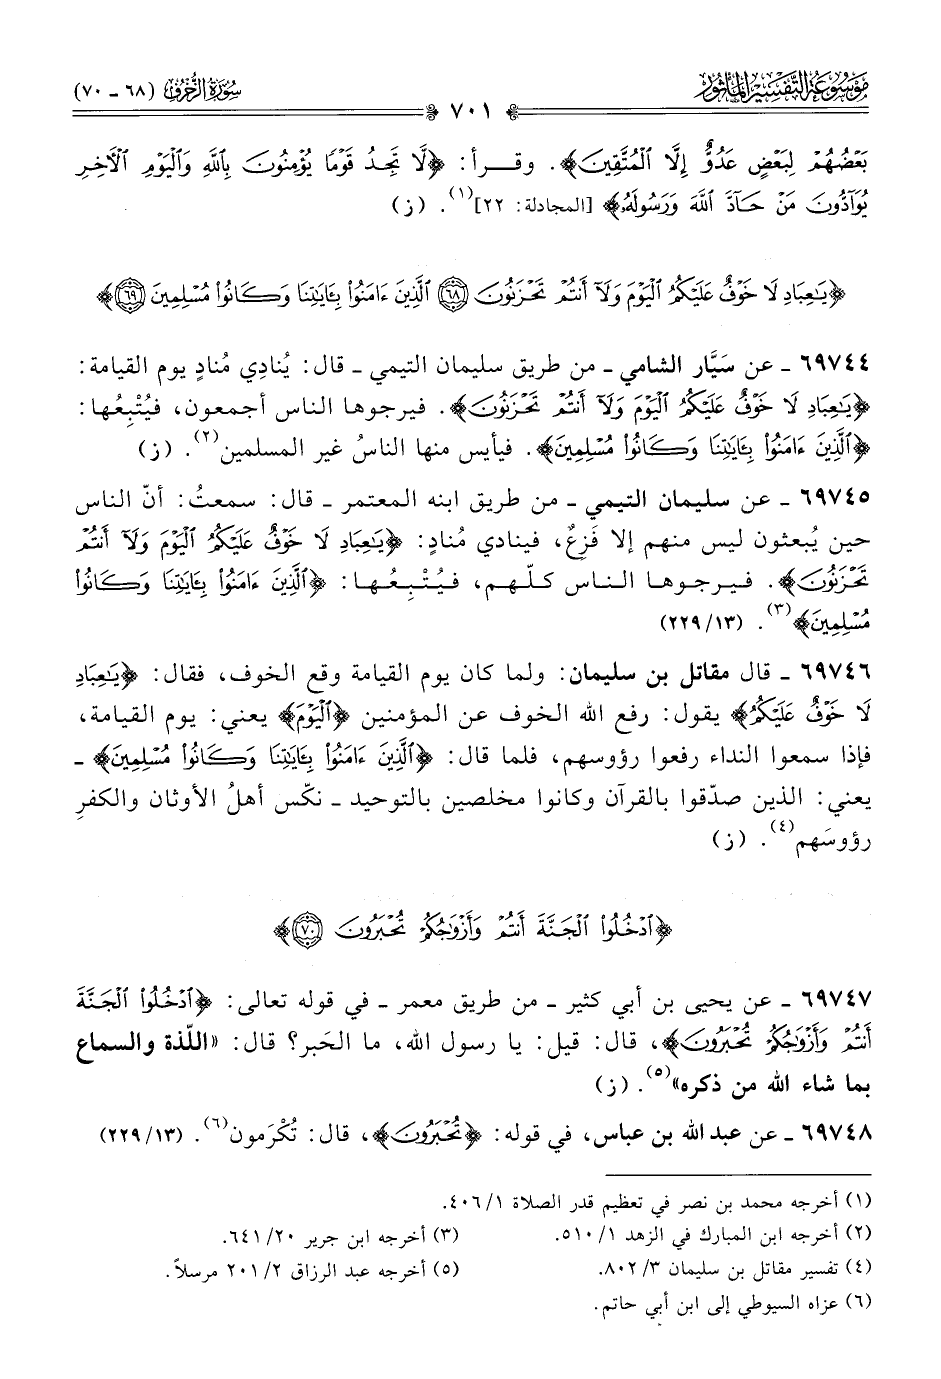 مَوْسُوعَة التَّفْسِيرِ المَأثُور
٧٠١
سُورَةُ الزُّخْرُفِ (٦٨ - ٧٠)
بَعْضُهُمْ لِبَعْضٍ عَدُوٌّ إِلَّا ٱلْمُتَّقِينَ﴾. وقـرأ: ﴿لَّا تَجِدُ قَوْمًا يُؤْمِنُونَ بِٱللَّهِ وَٱلْيَوْمِ ٱلْآخِرِ
يُوَآدُّونَ مَنْ حَآدَّ ٱللَّهَ وَرَسُولَهُۥ﴾ [المجادلة: ٢٢](١). (ز)
﴿يَٰعِبَادِ لَا خَوْفٌ عَلَيْكُمُ ٱلْيَوْمَ وَلَآ أَنتُمْ تَحْزَنُونَ ٦٨ ٱلَّذِينَ ءَامَنُوا۟ بِـَٔايَٰتِنَا وَكَانُوا۟ مُسْلِمِينَ ٦٩﴾
٦٩٧٤٤ - عن سَيَّار الشامي - من طريق سليمان التيمي - قال: يُنادِي مُنادٍ يوم القيامة:
﴿يَٰعِبَادِ لَا خَوْفٌ عَلَيْكُمُ ٱلْيَوْمَ وَلَآ أَنتُمْ تَحْزَنُونَ﴾. فيرجوها الناس أجمعون، فيُتْبِعُها:
﴿ٱلَّذِينَ ءَامَنُوا۟ بِـَٔايَٰتِنَا وَكَانُوا۟ مُسْلِمِينَ﴾. فيأيس منها الناسُ غير المسلمين(٢). (ز)
٦٩٧٤٥ - عن سليمان التيمي - من طريق ابنه المعتمر - قال: سمعتُ: أنّ الناس
حين يُبعثون ليس منهم إلا فَزِعٌ، فينادي مُنادٍ: ﴿يَٰعِبَادِ لَا خَوْفٌ عَلَيْكُمُ ٱلْيَوْمَ وَلَآ أَنتُمْ
تَحْزَنُونَ﴾. فيرجوها الناس كلّهم، فيُتْبِعُها: ﴿ٱلَّذِينَ ءَامَنُوا۟ بِـَٔايَٰتِنَا وَكَانُوا۟
مُسْلِمِينَ﴾(٣). (١٣/ ٢٢٩)
٦٩٧٤٦ - قال مقاتل بن سليمان: ولما كان يوم القيامة وقع الخوف، فقال: ﴿يَٰعِبَادِ
لَا خَوْفٌ عَلَيْكُمُ﴾ يقول: رفع الله الخوف عن المؤمنين ﴿ٱلْيَوْمَ﴾ يعني: يوم القيامة،
فإذا سمعوا النداء رفعوا رؤوسهم، فلما قال: ﴿ٱلَّذِينَ ءَامَنُوا۟ بِـَٔايَٰتِنَا وَكَانُوا۟ مُسْلِمِينَ﴾ -
يعني: الذين صدّقوا بالقرآن وكانوا مخلصين بالتوحيد - نكّس أهلُ الأوثان والكفرِ
رؤوسَهم(٤). (ز)
﴿ٱدْخُلُوا۟ ٱلْجَنَّةَ أَنتُمْ وَأَزْوَٰجُكُمْ تُحْبَرُونَ ٧٠﴾
٦٩٧٤٧ - عن يحيى بن أبي كثير - من طريق معمر - في قوله تعالى: ﴿ٱدْخُلُوا۟ ٱلْجَنَّةَ
أَنتُمْ وَأَزْوَٰجُكُمْ تُحْبَرُونَ﴾، قال: قيل: يا رسول الله، ما الحَبر؟ قال: «اللّذة والسماع
بما شاء الله من ذكره»(٥). (ز)
٦٩٧٤٨ - عن عبد الله بن عباس، في قوله: ﴿تُحْبَرُونَ﴾، قال: تُكْرَمون(٦). (١٣/ ٢٢٩)
(١) أخرجه محمد بن نصر في تعظيم قدر الصلاة ١/ ٤٠٦.
(٢) أخرجه ابن المبارك في الزهد ١/ ٥١٠.
(٣) أخرجه ابن جرير ٢٠/ ٦٤١.
(٤) تفسير مقاتل بن سليمان ٣/ ٨٠٢.
(٥) أخرجه عبد الرزاق ٢/ ٢٠١ مرسلاً.
(٦) عزاه السيوطي إلى ابن أبي حاتم.